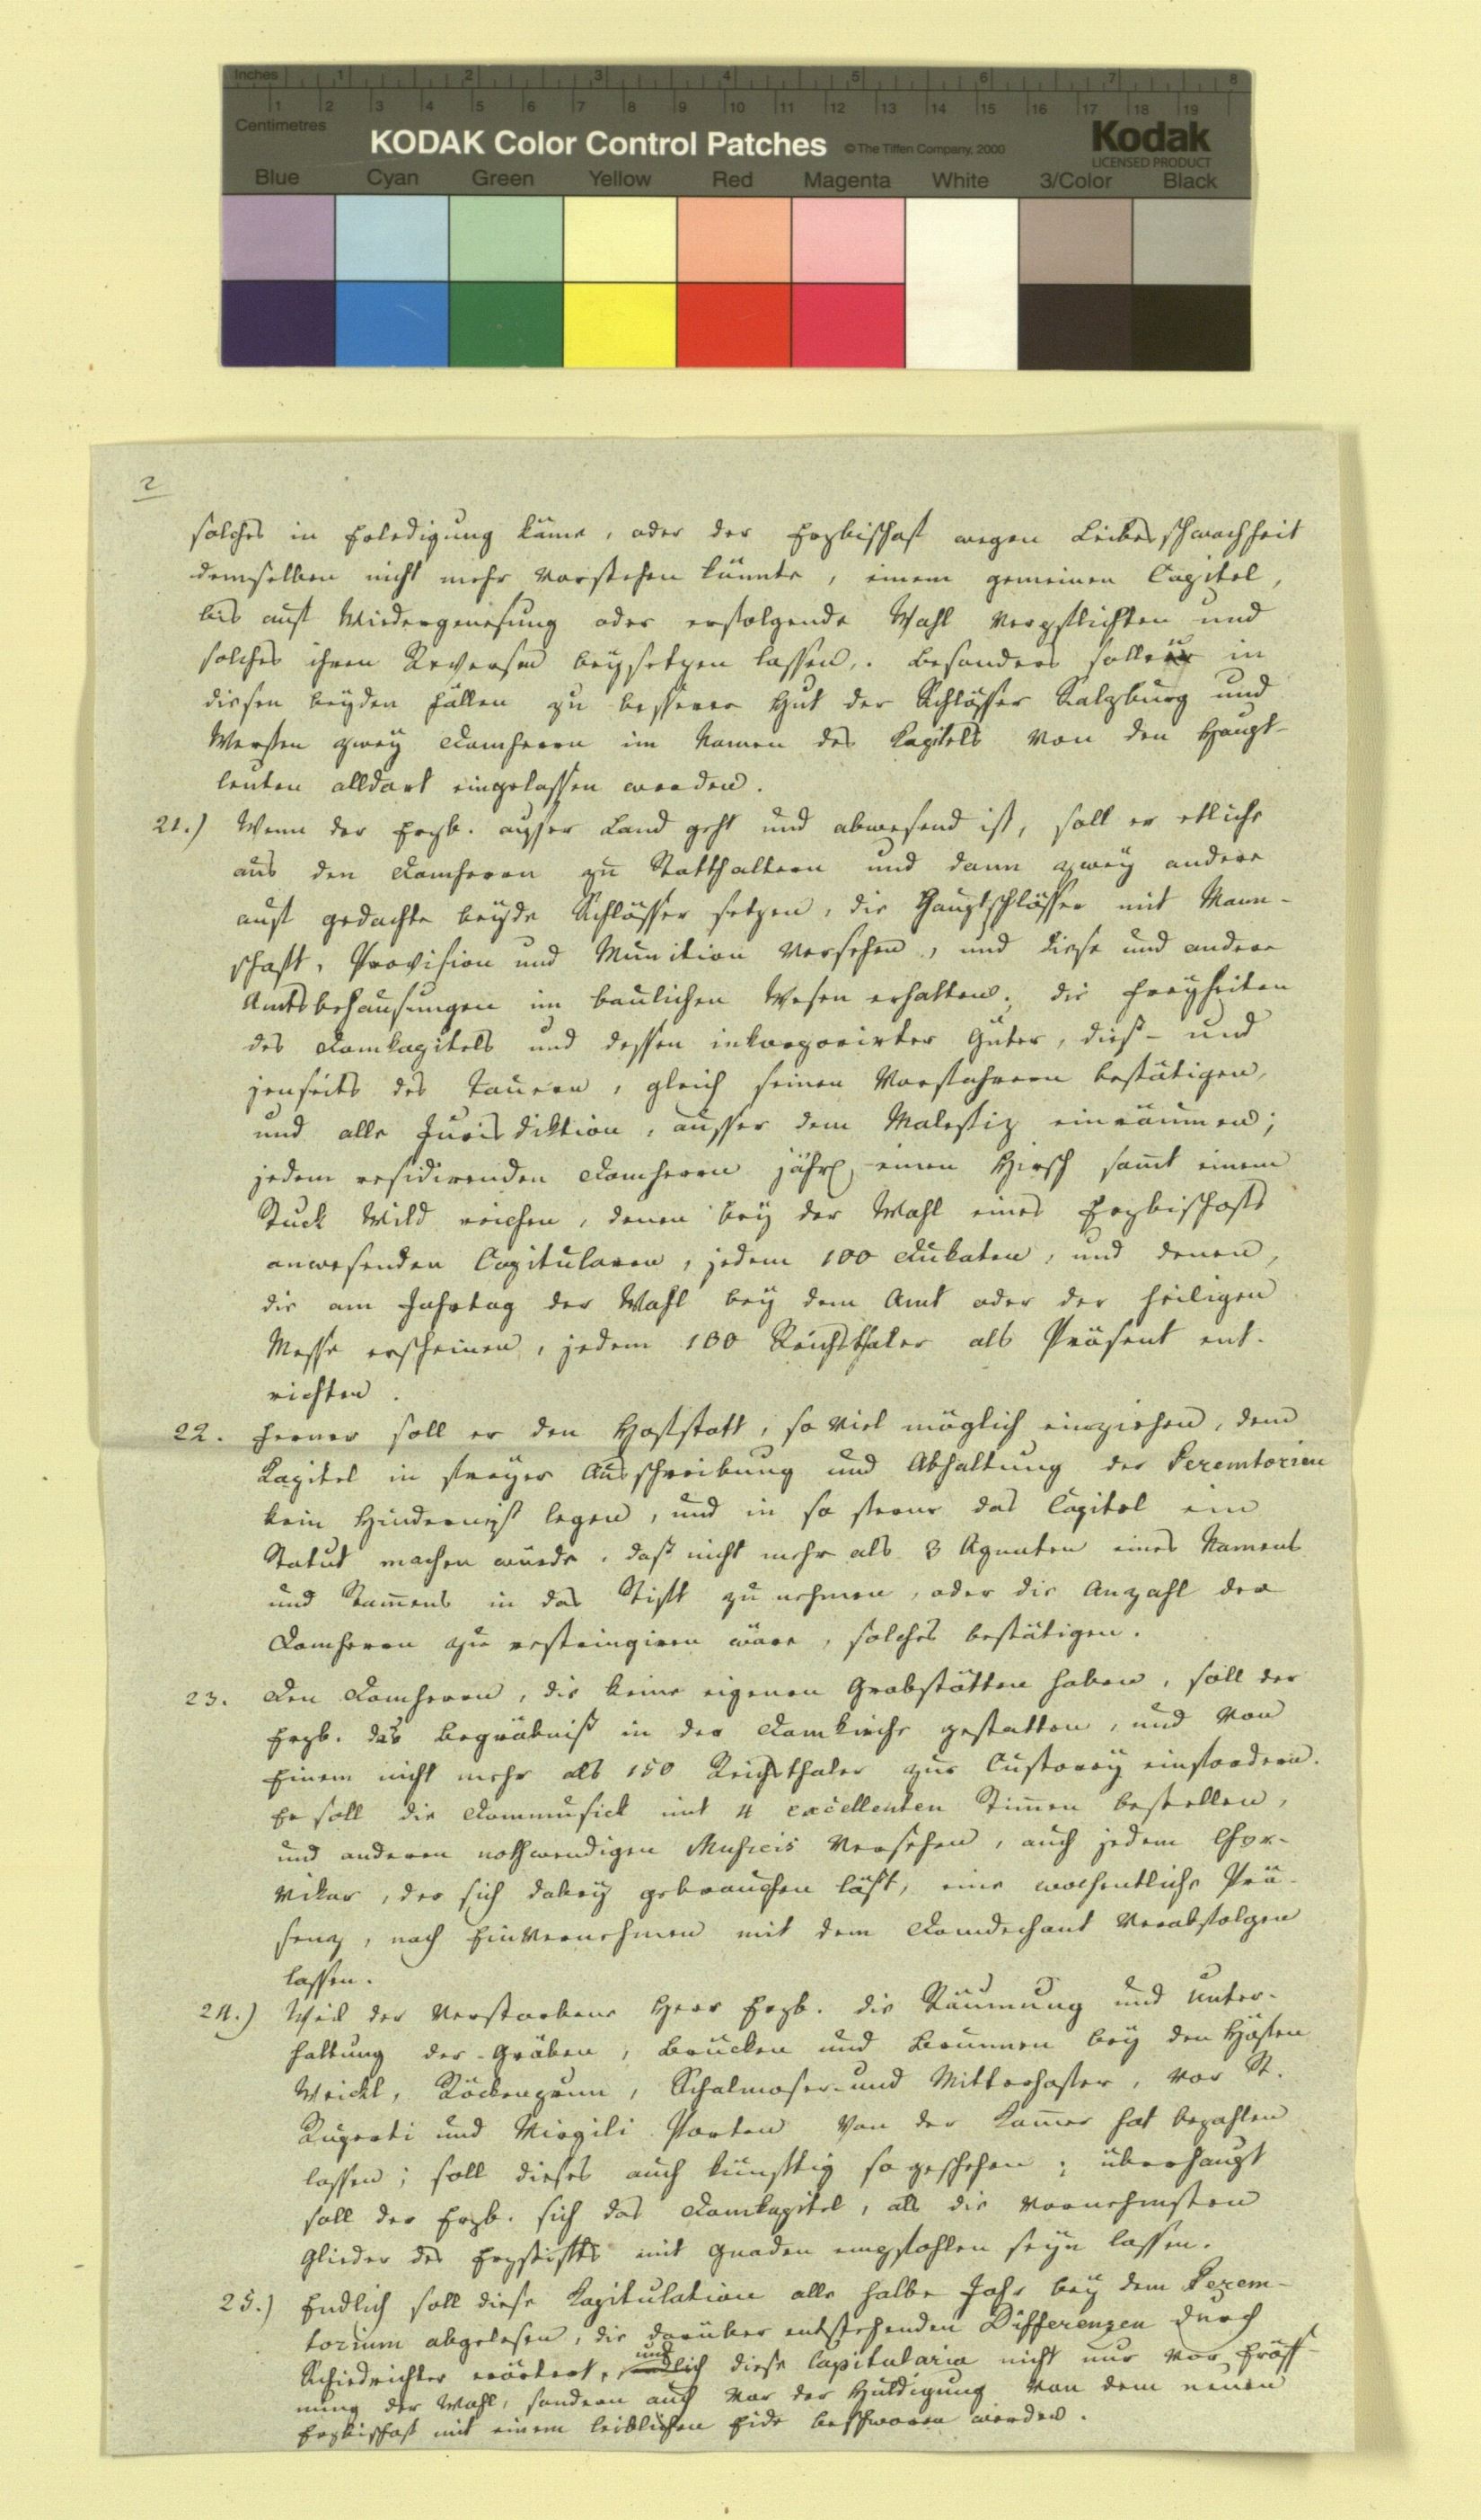 Inches 1 2 3 4 5 6 7 8
1 2 3 4 5 6 7 8 9 10 11 12 13 14 15 16 17 18 19
Centimetres
KODAK Color Control Patches © The Tiffen Company, 2000 Kodak
LICENSED PRODUCT
Blue Cyan Green Yellow Red Magenta White 3/Color Black
2
solches in Erledigung käme, oder der Erzbischof wegen Leibesschwachheit
demselben nicht mehr vorstehen könnte, einem gemeinen Capitel,
bis auf Wiedergenesung oder erfolgende Wahl verpflichten und
solches ihren Reversen beysetzen lassen. Besonders sollen in
diesen beyden Fällen zu besserer Hut der Schlösser Salzburg und
Werfen zwey Domherrn im Namen des Kapitels von den Haupt-
leuten alldort eingelassen werden.
21.) Wenn der Erzb. ausser Land geht und abwesend ist, soll er etliche
aus den Domherrn zu Statthaltern und dann zwey andere
auf gedachte beyde Schlösser setzen, die Hauptschlösser mit Mann-
schaft, Provision und Munition versehen, und diese und andere
Amtsbehausungen im baulichen Wesen erhalten; die Freyheiten
des Domkapitels und dessen inkorporirter Güter, dies- und
jenseits des Tauern, gleich seinen Vorfahrern bestätigen,
und alle Jurisdiktion, ausser dem Malefiz einräumen;
jedem residirenden Domherrn jährl. einen Hirsch samt einem
Stuck Wild reichen, denen bey der Wahl eines Erzbischofs
anwesenden Capitularen, jedem 100 Dukaten, und denen,
die am Jahrtag der Wahl bey dem Amt oder der heiligen
Messe erscheinen, jedem 100 Reichsthaler als Präsent ent-
richten.
22. Ferner soll er den Hofstatt, so viel möglich einziehen, dem
Kapitel in freyer Ausschreibung und Abhaltung der Peremtorien
kein Hinderniß legen, und in so ferne das Capitel ein
Statut machen würde, daß nicht mehr als 3 Agnaten eines Namens
und Stammens in das Stift zu nehmen, oder die Anzahl der
Domherrn zu restringiren wäre, solches bestätigen.
23. Den Domherrn, die keine eigenen Grabstätten haben, soll der
Erzb. das Begräbniß in der Domkirche gestatten, und von
Einem nicht mehr als 150 Reichsthaler zur Custorey einfordern.
Er soll die Dommusick mit 4 excellenten Stimmen bestellen,
und anderen nothwendigen Musicis versehen, auch jedem Chor-
vikar, der sich dabey gebrauchen läßt, eine wochentliche Prä-
senz, nach Einvernehmen mit dem Domdechant verabfolgen
lassen.
24.) Weil der verstorbene Herr Erzb. die Räumung und Unter-
haltung der Gräben, Brücken und Brunnen bey den Höfen
Weickl, Röckenzaun, Schalmoser- und Mitterhofer, vor St.
Ruperti und Virgili Porten von der Kammer hat bezahlen
lassen; soll dieses auch künftig so geschehen; überhaupt
soll der Erzb. sich das Domkapitel, als die vornehmsten
Glieder des Erzstifts mit Gnaden empfohlen seyn lassen.
25.) Endlich soll diese Kapitulation alle halbe Jahr bey dem Perem-
torium abgelesen, die darüber entstehenden Differenzen durch
Schiedrichter erörtert, und diese Capitularia nicht nur vor Eröff-
nung der Wahl, sondern auch vor der Huldigung von dem neuen
Erzbischof mit einem leiblichen Eide beschworen werden.